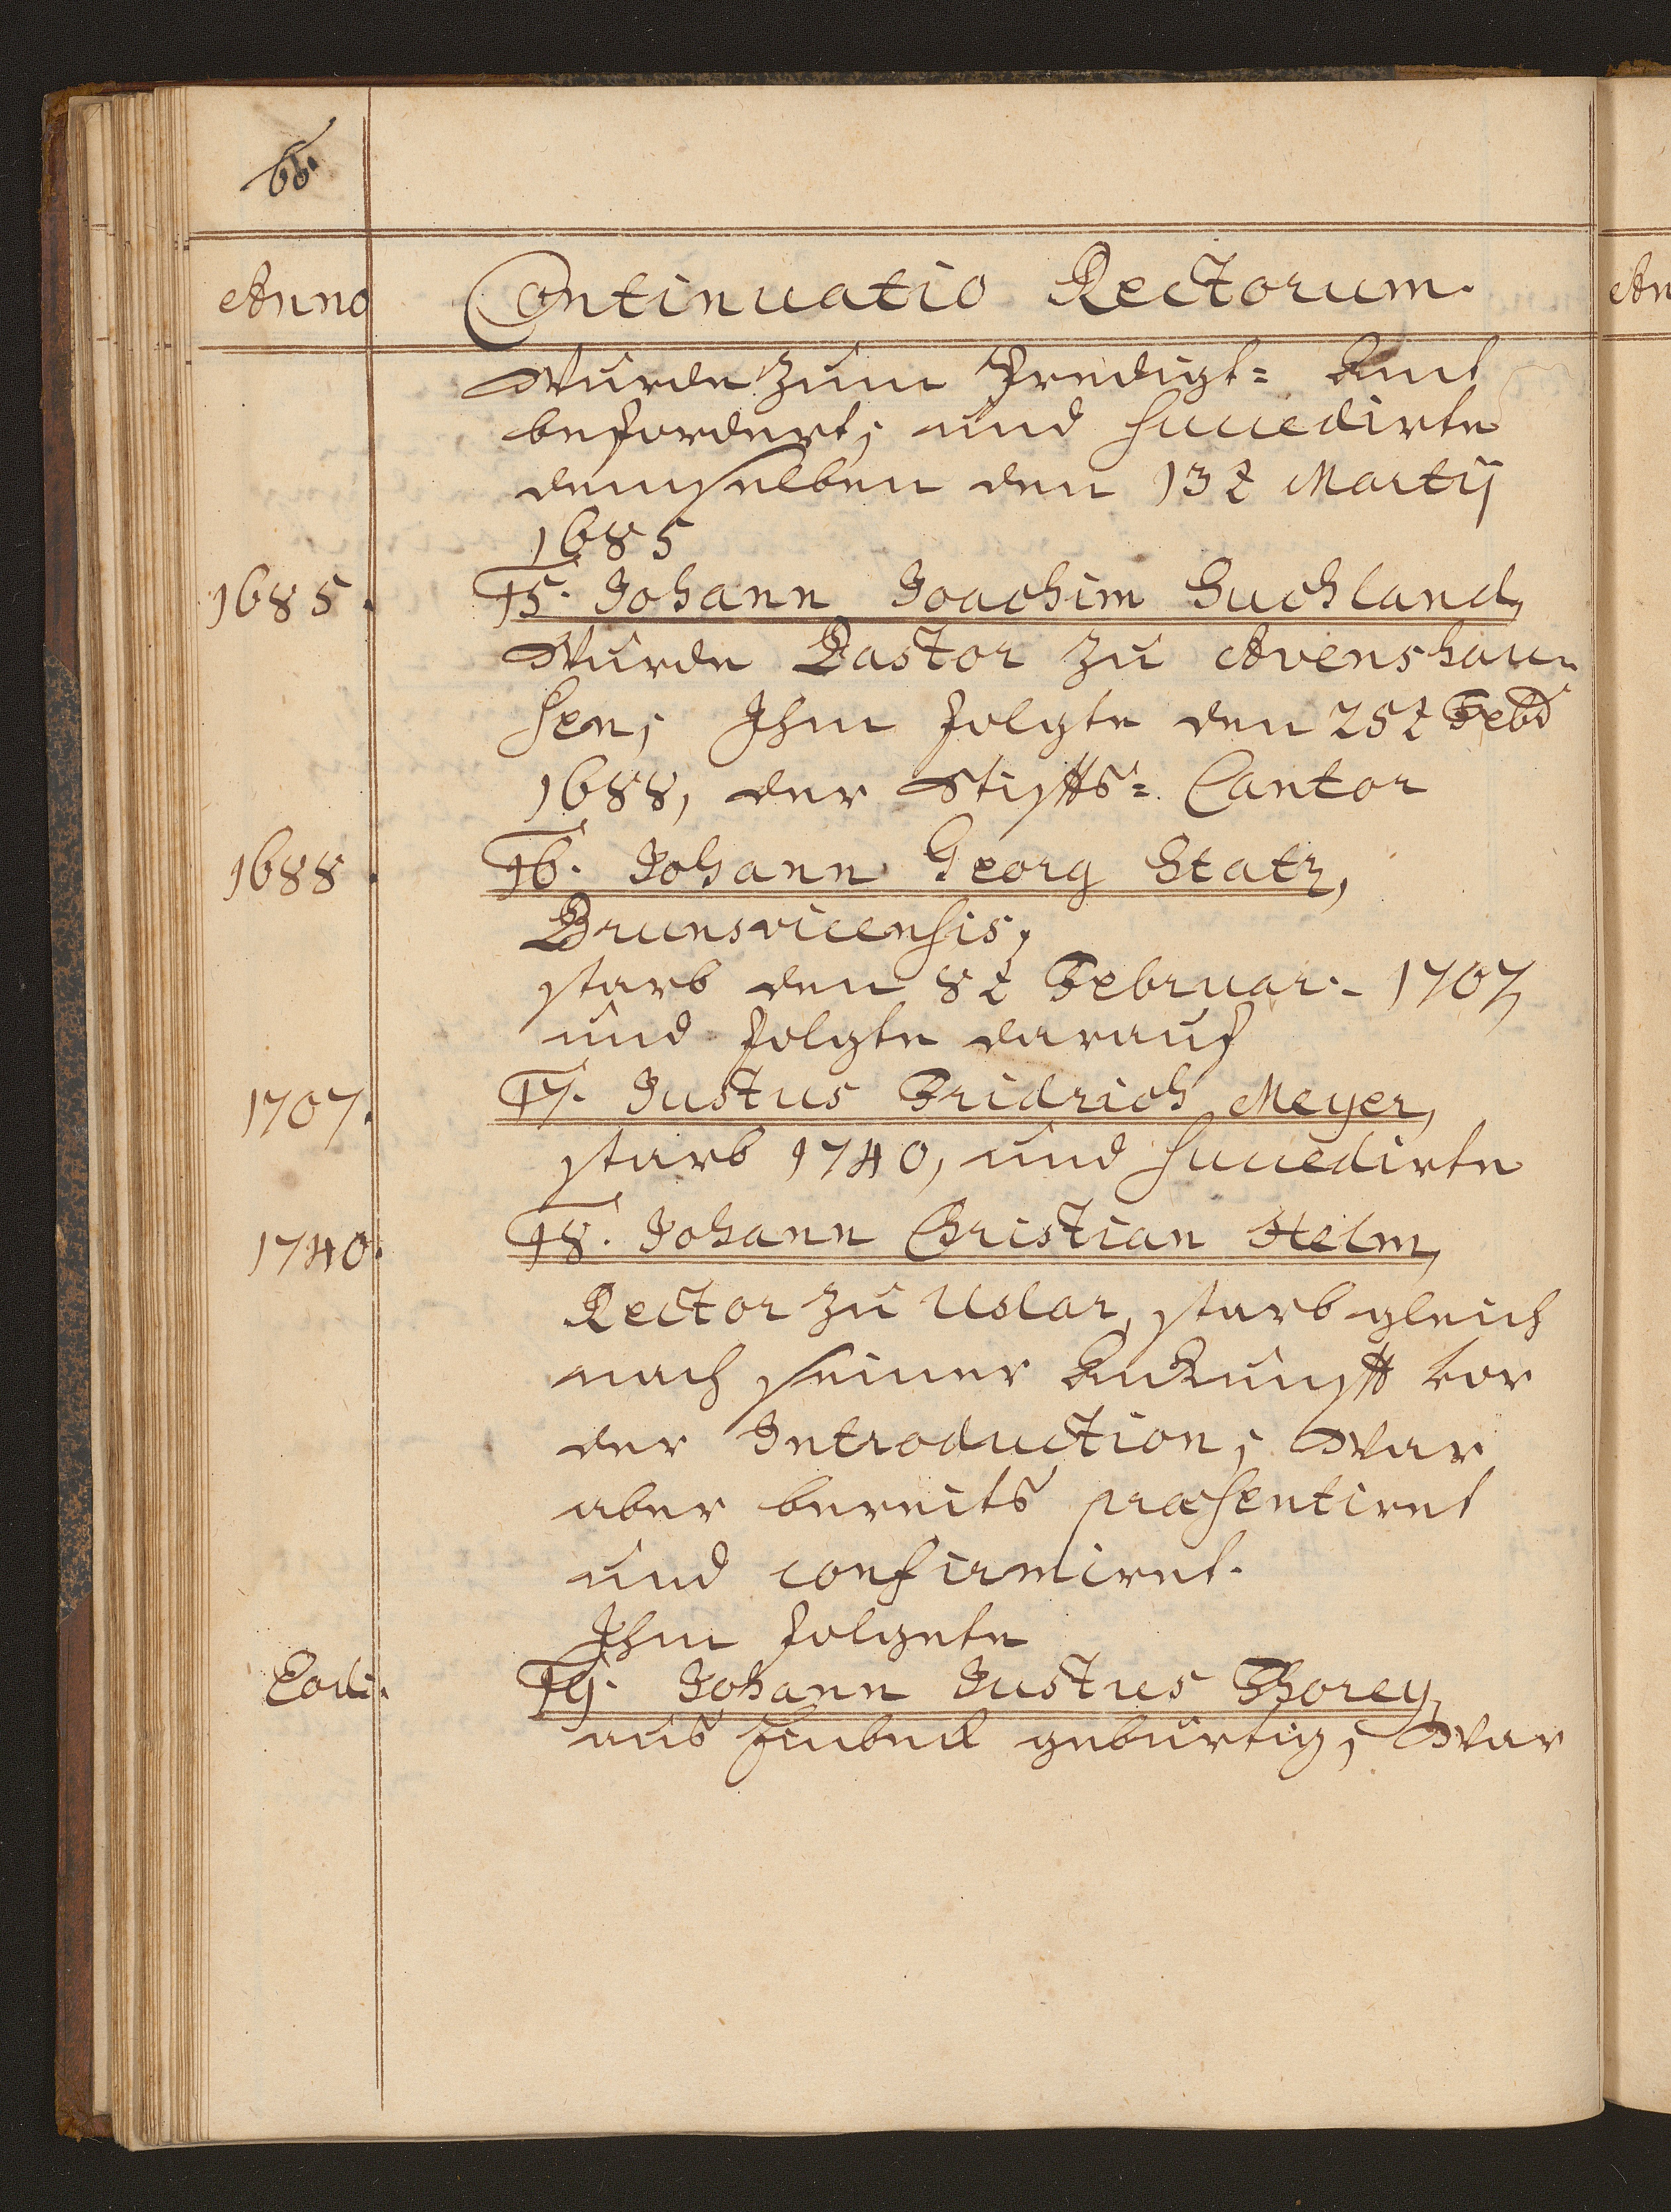 66.
Anno
Continuatio Rectorum.
An
Wurde zum Predigt= Amt
befordert; und succedirte
demselben den 13t Martij
1685
1685.
15. Johann Joachim Suchland,
Wurde Pastor zu Avenshau-
sen; Ihm folgte den 25t Febr
1688, der Stiffts= Cantor
1688.
16. Johann Georg Statz,
Brunsvicensis;
starb den 8t Februar. 1707,
und folgte darauf
1707.
17. Justus Fridrich Meyer,
starb 1740, und succedirte
1740.
18. Johann Christian Helm,
Rector zu Uslar, starb gleich
nach seiner Ankunfft vor
der Introduction; War
aber bereits præsentiret
und confirmiret.
Ihm folgete
Eod.
19. Johann Justus Thorey,
aus Einbeck geburtig; War